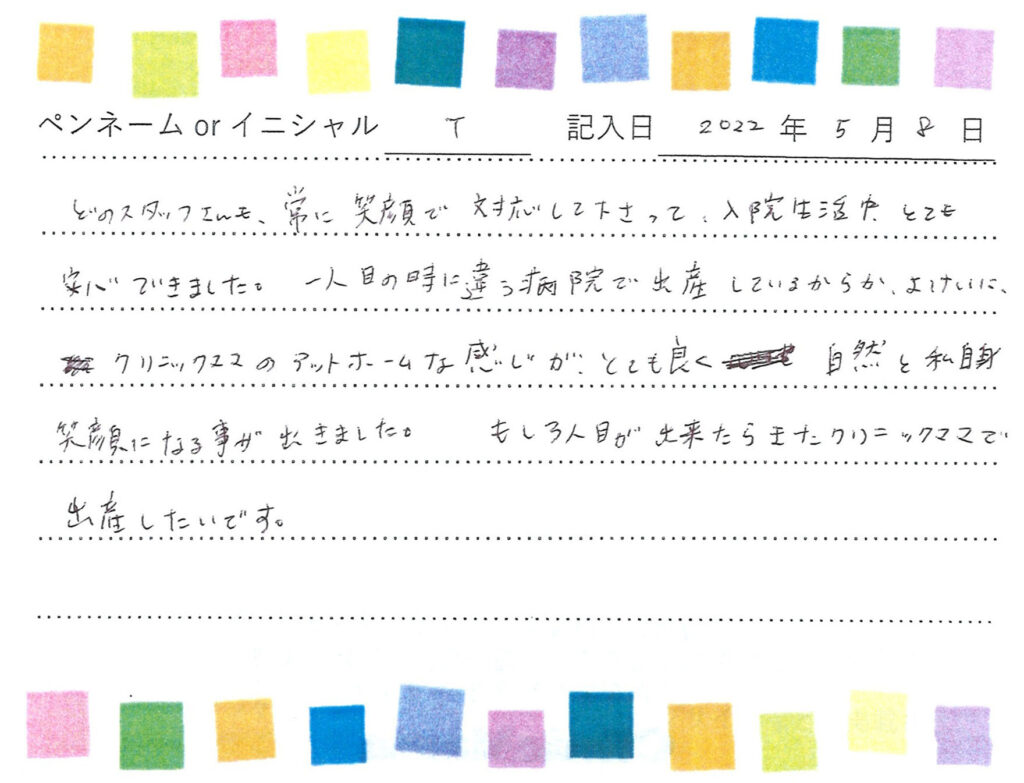 ペンネーム or イニシャル T 記入日 2022 年 5 月 8 日
どのスタッフさんも、常に笑顔で 対応して下さって、入院生活中 とても
安心できました。 一人目の時に違う病院で出産しているからか、よけいに、
クリニックママのアットホームな感じが、とても良く 自然と私自身
笑顔になる事が出きました。 もし3人目が出来たらまたクリニックママで
出産したいです。